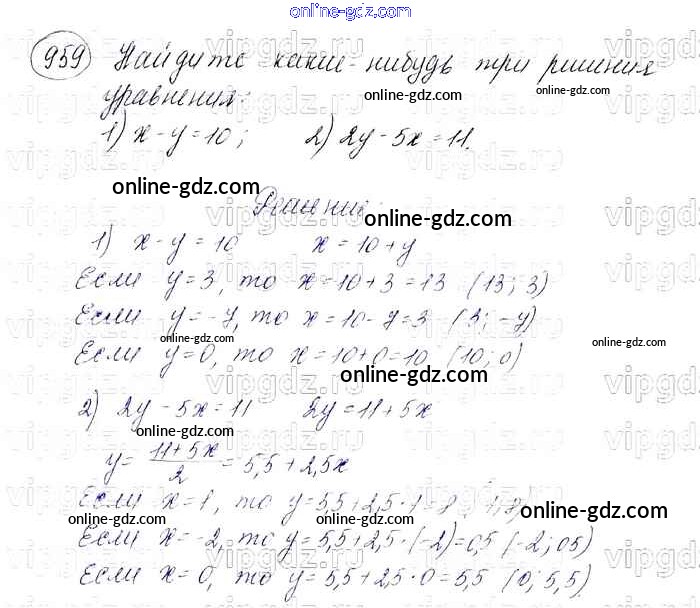 online-gdz.com
959 Найдите какие-нибудь три решения
уравнения:
online-gdz.com
1) x - y = 10; 2) 2y - 5x = 11.
online-gdz.com
Решение:
online-gdz.com
1) x - y = 10 x = 10 + y
Если y = 3, то x = 10 + 3 = 13 (13; 3)
Если y = -7, то x = 10 - 7 = 3 (3; -7)
online-gdz.com
online-gdz.com
Если y = 0, то x = 10 + 0 = 10 (10; 0)
online-gdz.com
2) 2y - 5x = 11 2y = 11 + 5x
online-gdz.com
y = (11 + 5x)/2 = 5,5 + 2,5x
Если x = 1, то y = 5,5 + 2,5·1 = 8
online-gdz.com
online-gdz.com
Если x = -2, то y = 5,5 + 2,5·(-2) = 0,5 (-2; 05)
Если x = 0, то y = 5,5 + 2,5·0 = 5,5 (0; 5,5)